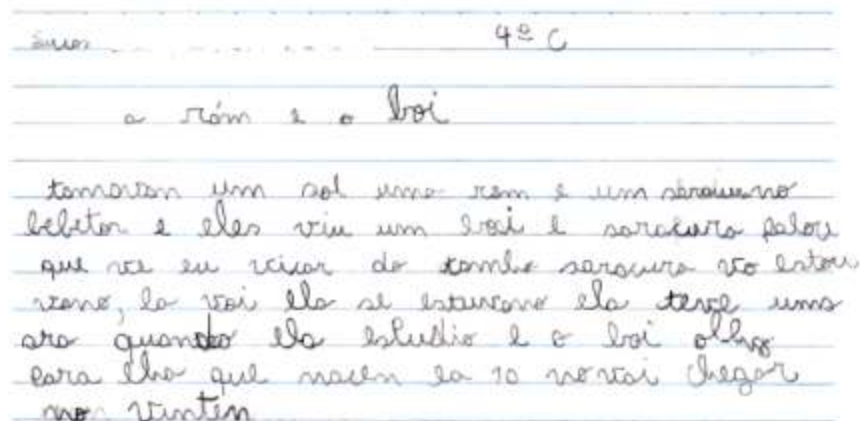 4º C
a róm e o boi
tomavan um sol uma rem e um
bebeton e eles viu um boi e saracura falou
que ve eu ficar do tamho saracura vo estou
vano, la vai ela se estourano ela teve uma
ora quando ela esludio e o boi olho
para lha que nacen la 10 no vai chegar
no vinten